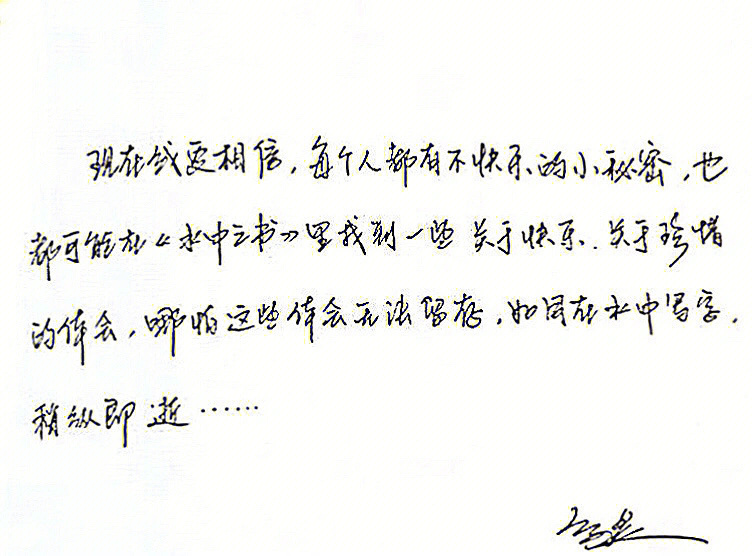 现在我要相信,每个人都有不快乐的小秘密,也
都可能在《水中之书》里找到一些关于快乐、关于珍惜
的体会,哪怕这些体会无法留存,如同在水中写字,
稍纵即逝……